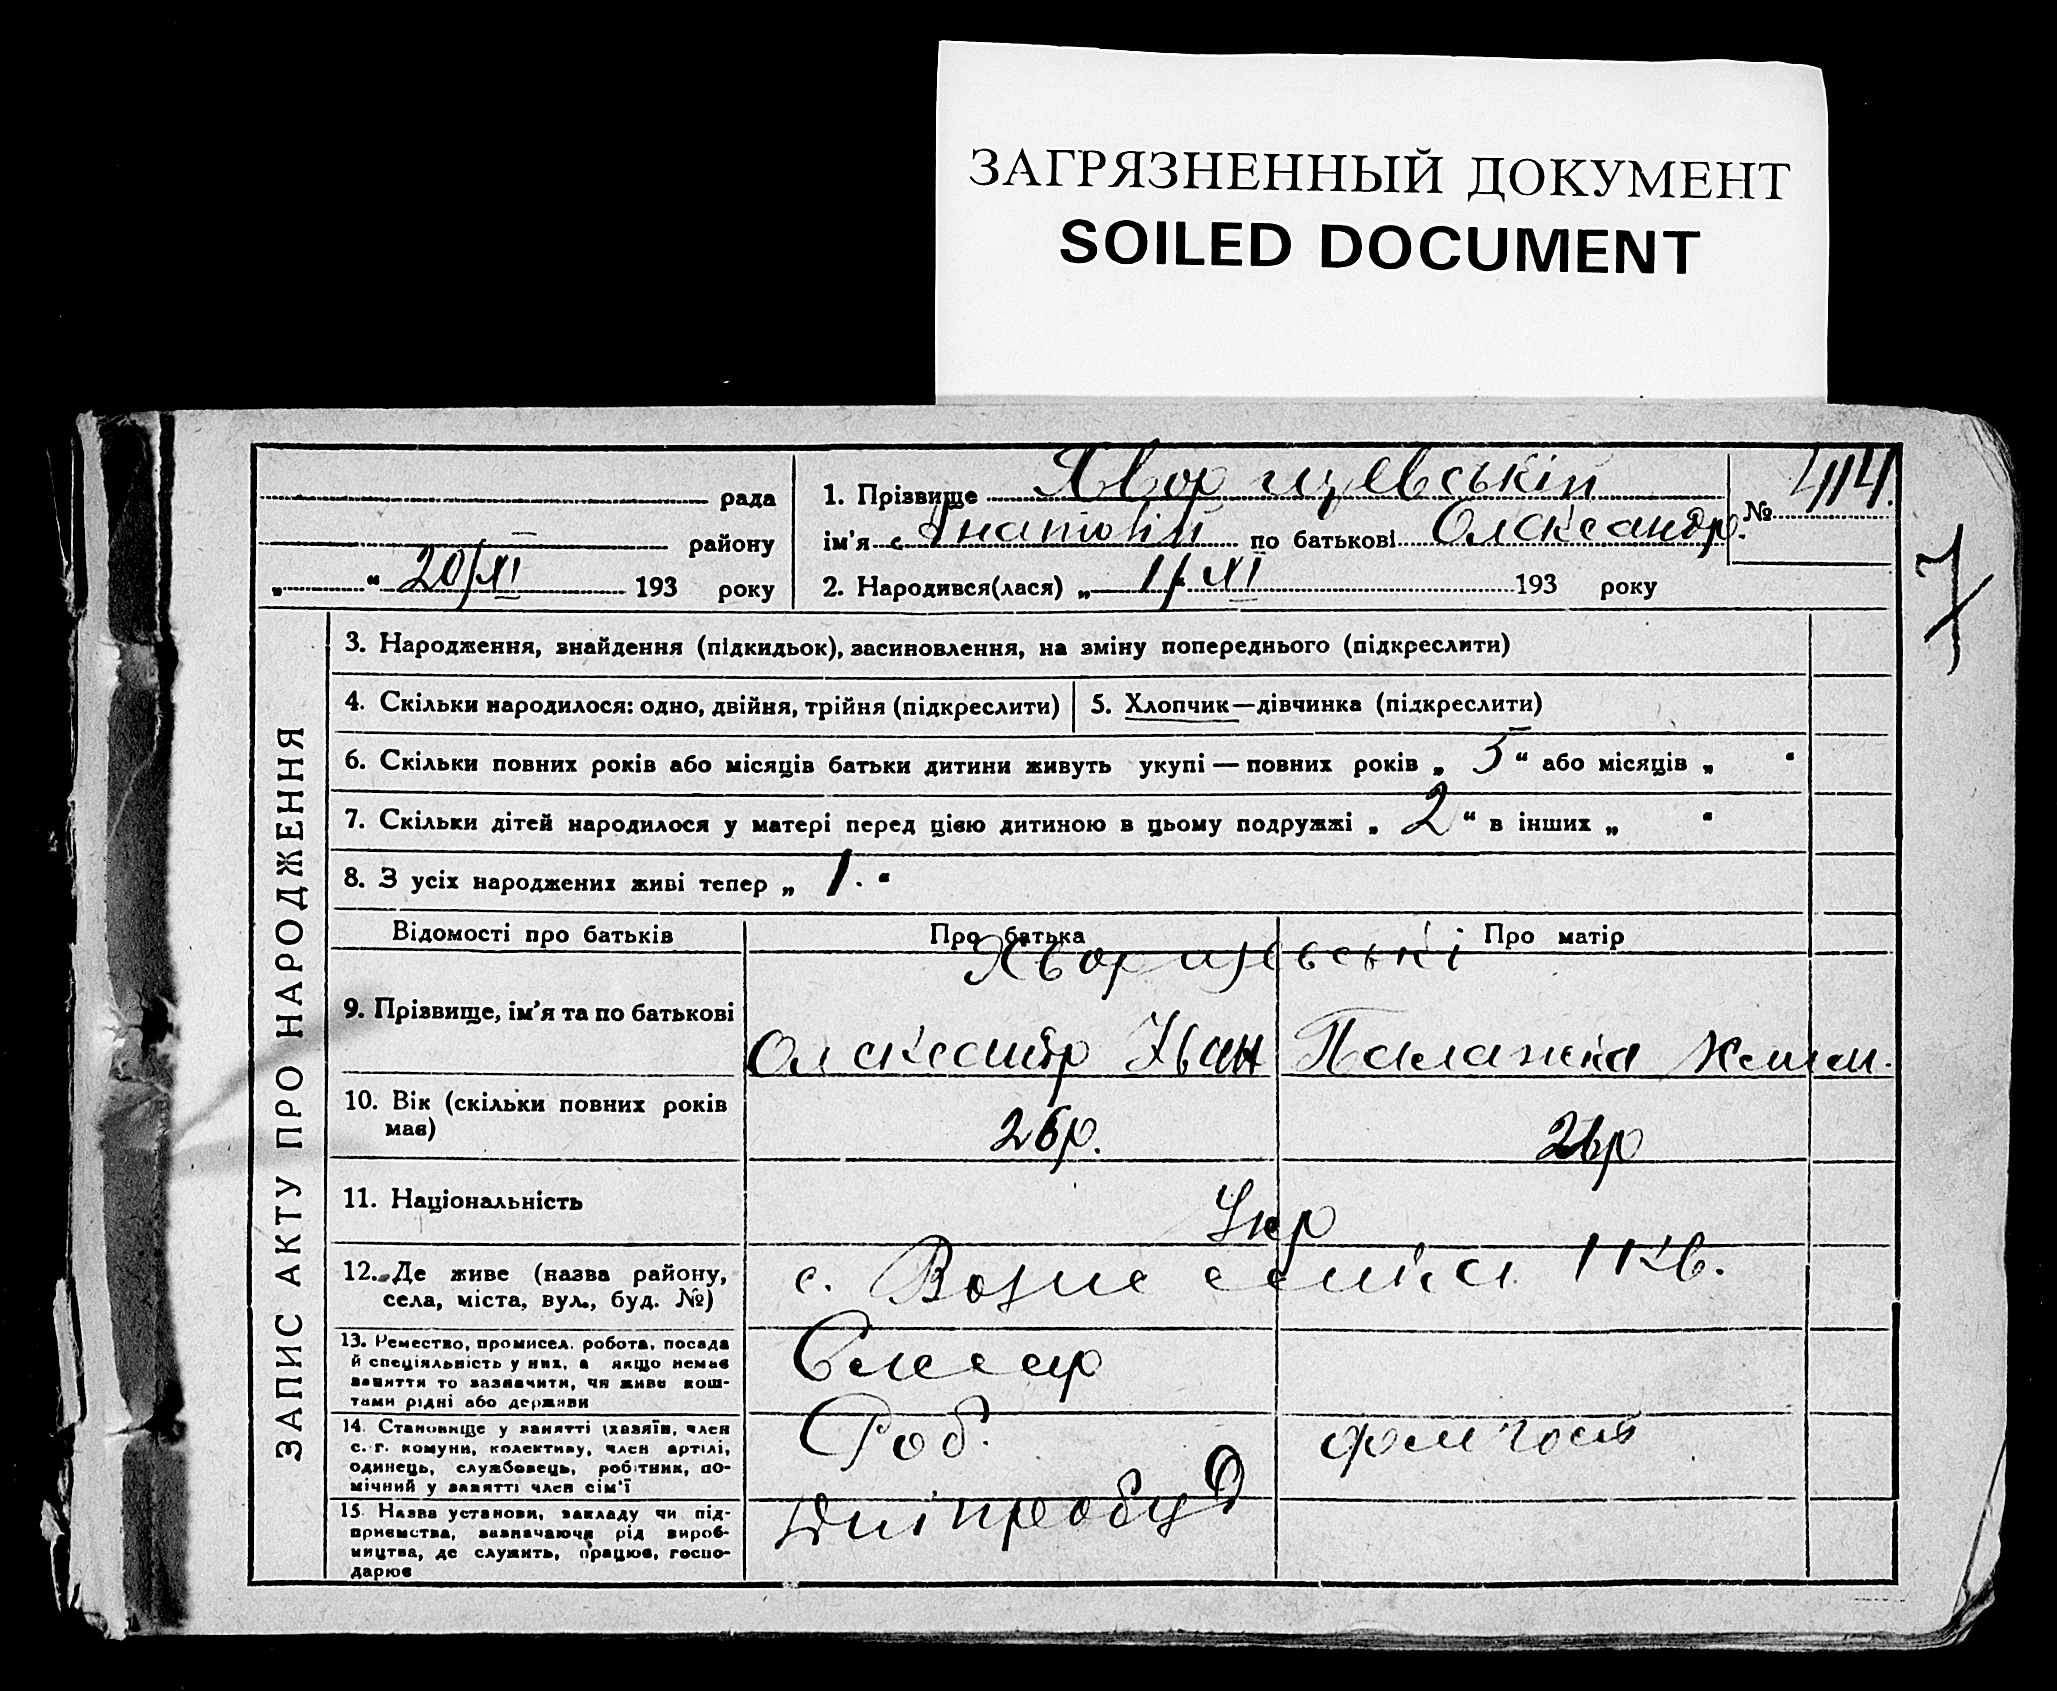 ЗАГРЯЗНЕННЫЙ ДОКУМЕНТ
SOILED DOCUMENT
рада
району
„ “ 20/XI 193 року
1. Прізвище
ім'я Анатолій по батькові Олександр.
№ 414.
2. Народився(лася) „ 1/XI 193 року
7
ЗАПИС АКТУ ПРО НАРОДЖЕННЯ
3. Народження, знайдення (підкидьок), засиновлення, на зміну попереднього (підкреслити)
4. Скільки народилося: одно, двійня, трійня (підкреслити)
5. Хлопчик—дівчинка (підкреслити)
6. Скільки повних років або місяців батьки дитини живуть укупі — повних років „ 5 “ або місяців „ “
7. Скільки дітей народилося у матері перед цією дитиною в цьому подружжі „ 2 “ в інших „ “
8. З усіх народжених живі тепер „ 1. “
Відомості про батьків
Про батька
Про матір
9. Прізвище, ім'я та по батькові
Олександр Іван
Палажка
10. Вік (скільки повних років
має)
26р.
26р
11. Національність
Укр
12. Де живе (назва району,
села, міста, вул., буд. №)
с. Вознесенка
13. Ремество, промисел, робота, посада
й спеціяльність у них, а якщо немає
заняття то зазначити, чи живе кош-
тами рідні або держави
Слюсар
14. Становище у занятті (хазяїн, член
с.-г. комуни, колективу, член артілі,
одинець, службовець, робітник, по-
мічний у занятті член сім'ї
Роб.
15. Назва установи, закладу чи під-
приємства, зазначаючи рід вироб-
ництва, де служить, працює, госпо-
дарює
Дніпробуд